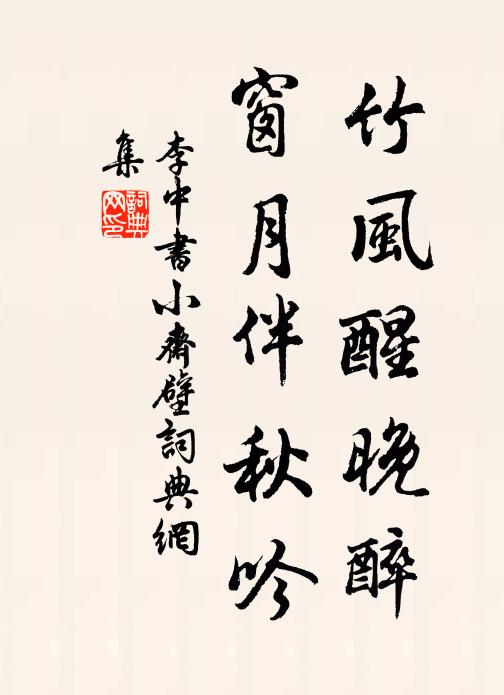 竹風醒晚醉
窗月伴秋吟
李中書小齋壁詞典網
集
詞典
网印